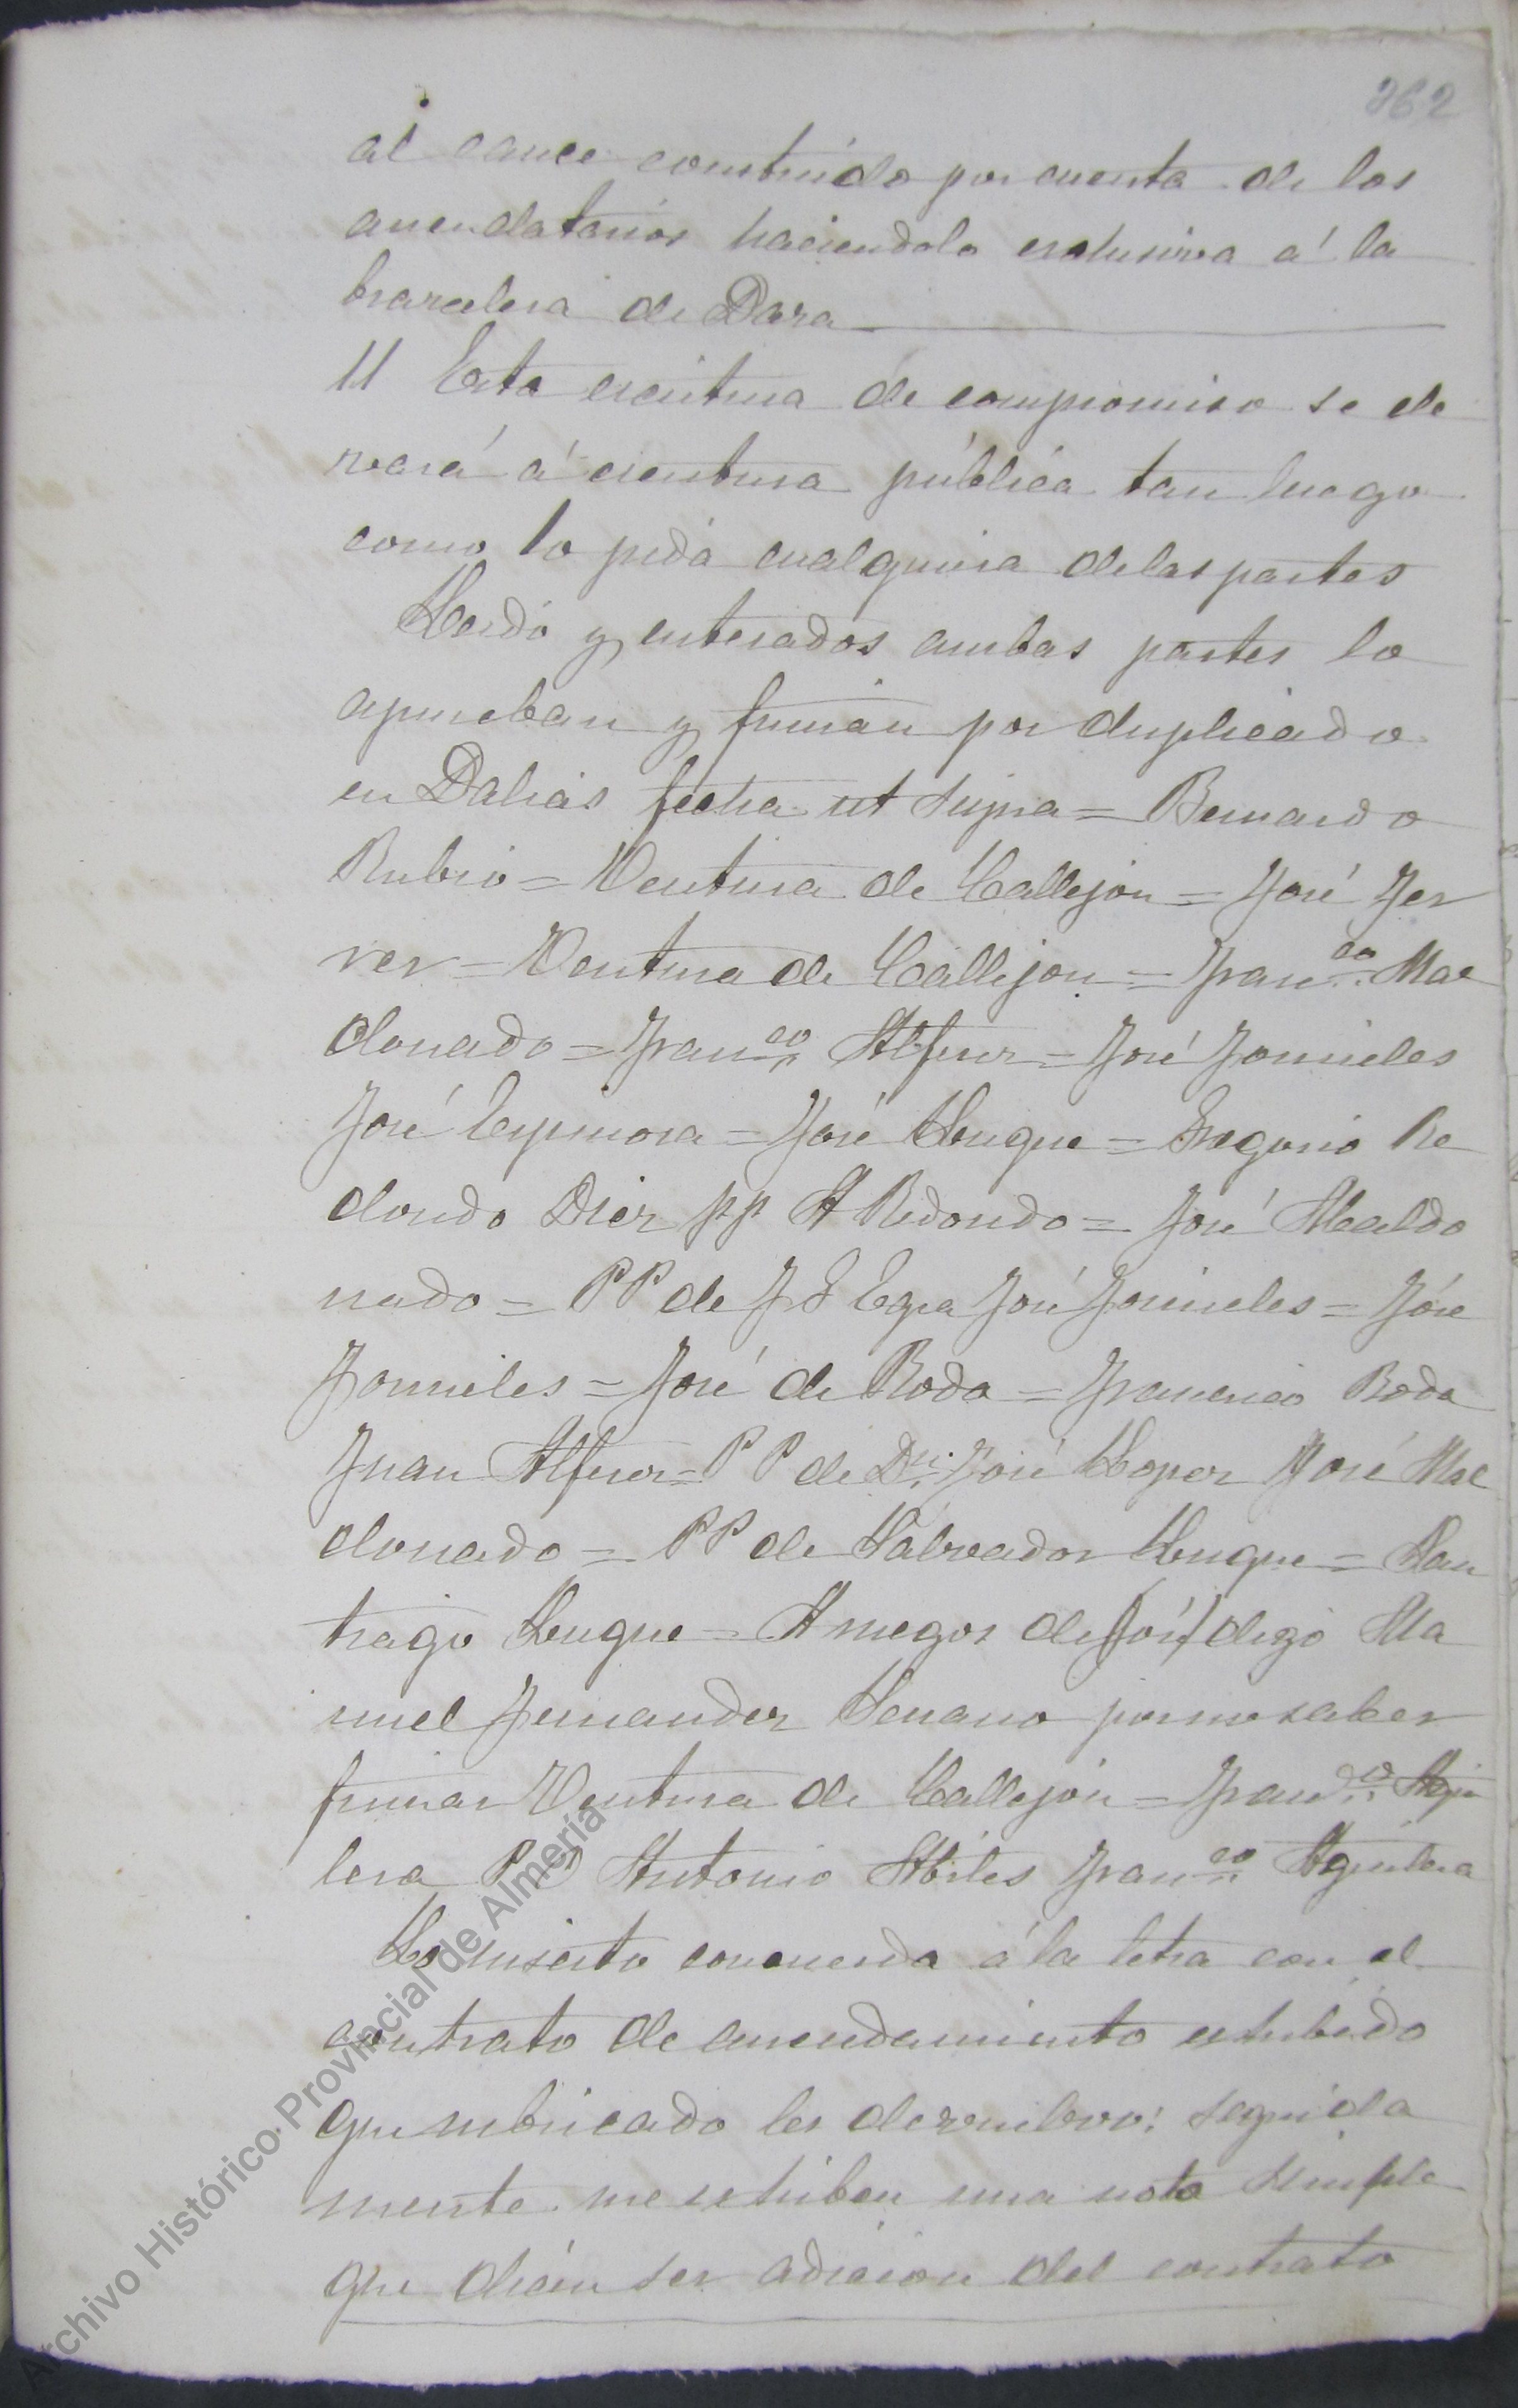 362
al cauce construido por cuenta de los
arrendatarios haciendolo exclusiva á la
barcelesa de Daza
11 Esta escritura de compromiso se ele
vará á escritura pública tan luego
como lo pida cualquiera de las partes
Leido y enterados ambas partes lo
aprueban y firman por duplicado
en Dalias fecha ut supra = Bernardo
Rubio = Ventura de Callejon = José Fer
rer = Ventura de Callejon = Franco Mal
donado = Franco Alferez = José Fornieles
José Espinosa = José Luque = Gregorio Re
dondo Dier pp A Redondo = José Maldo
nado = PP de J G Egea José Fornieles = José
Fornieles = José de Roda = Francisco Roda
Juan Alferez = P P de Dn José Lopez José Mal
donado = PP de Salvador Luque = San
tiago Luque = A ruegos de José digo Ma
nuel Fernandez Serrano por no saber
firmar Ventura de Callejon = Franco Agui
lera PO Antonio Abiles Franco Aguilera
Lo inserto concuerda á la letra con el
contrato de arrendamiento exhibido
que rubricado les devuelvo: seguida
mente me exhiben una nota simple
que dicen ser adicion del contrato
Archivo Histórico Provincial de Almería